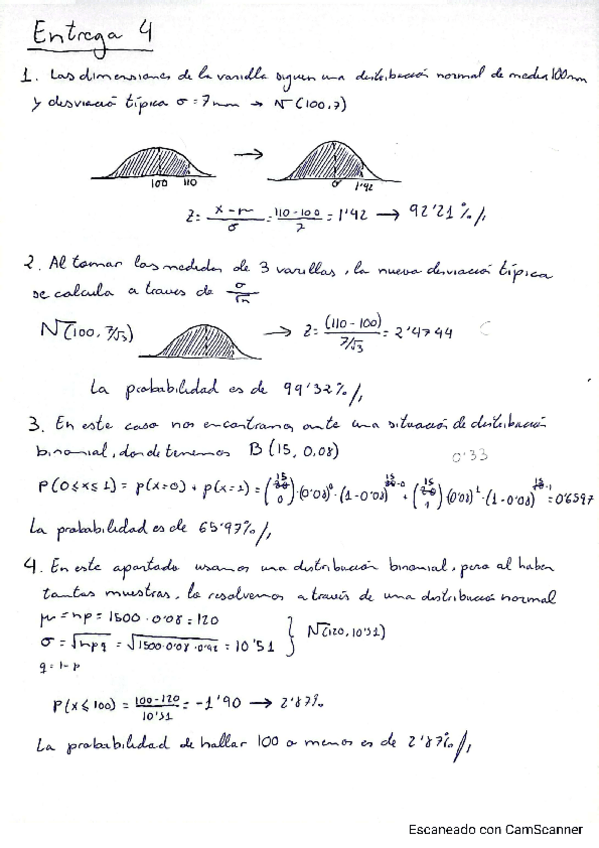 Entrega 4
1. Las dimensiones de la varilla siguen una distribución normal de media 100mm
y desviació típica σ = 7mm → N(100,7)
100 110 → 0 1'42
Z = x-μ/σ = 110-100/7 = 1'42 → 92'21%//
2. Al tomar las medidas de 3 varillas, la nueva desviació típica
se calcula a traves de σ/√n
N(100, 7/√3) → Z = (110-100)/7/√3 = 2'4744
La probabilidad es de 99'32%//
3. En este caso nos encontramos ante una situación de distribución
binomial, donde tenemos B(15, 0.08) 0'33
P(0≤x≤1) = p(x=0) + p(x=1) = (15 0)·(0'08)⁰·(1-0'08)¹⁵⁻⁰ + (15 1)·(0'08)¹·(1-0'08)¹⁵⁻¹ = 0'6597
La probabilidad es de 65'97%//
4. En este apartado usamos una distribución binomial, pero al haber
tantas muestras, lo resolvemos a través de una distribución normal
μ = np = 1500·0'08 = 120
σ = √npq = √1500·0'08·0'92 = 10'51 } N(120, 10'51)
q = 1-p
P(x≤100) = 100-120/10'51 = -1'90 → 2'87%
La probabilidad de hallar 100 o menos es de 2'87%//
Escaneado con CamScanner